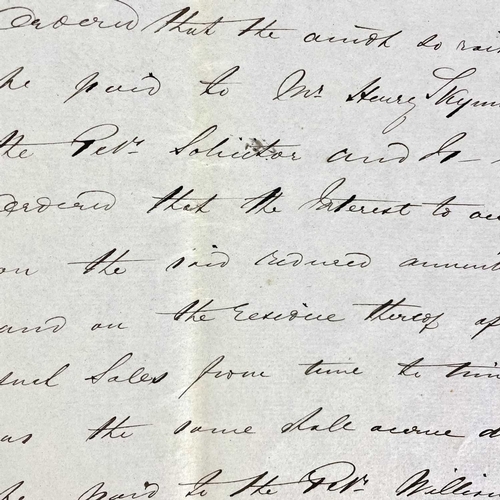 Ordered that the amot so rais
be paid to Mr. Henry Skym
the Petrs. Solicitor and It
ordered that the Interest to
on the said reduced annuit
and on the residue thereof af
such Sales from time to tim
as the same shall accrue
be paid to the Petr. William